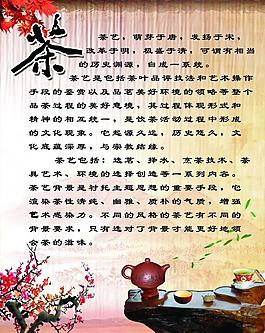 茶
茶艺，萌芽于唐，发扬于宋，
改革于明，极盛于清，可谓有相当
的历史渊源，自成一系统。
茶艺是包括茶叶品评技法和艺术操作
手段的鉴赏以及品茗美好环境的领略等整个
品茶过程的美好意境，其过程体现形式和
精神的相互统一，是饮茶活动过程中形成
的文化现象。它起源久远，历史悠久，文
化底蕴深厚，与宗教结缘。
茶艺包括：选茗、择水、烹茶技术、茶
具艺术、环境的选择创造等一系列内容。
茶艺背景是衬托主题思想的重要手段，它
渲染茶性清纯、幽雅、质朴的气质，增强
艺术感染力。不同的风格的茶艺有不同的
背景要求，只有选对了背景才能更好地领
会茶的滋味。